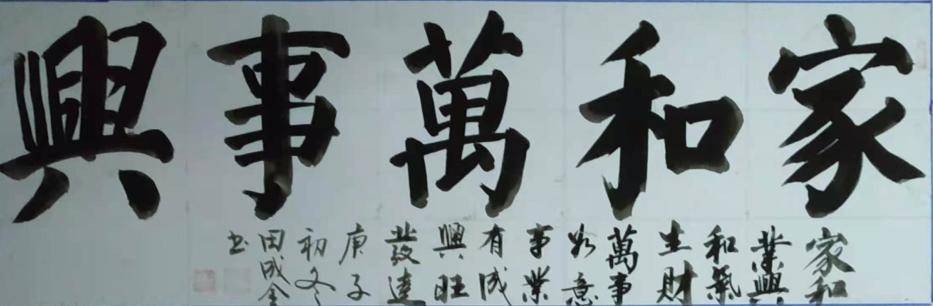 家和萬事興
家和
業興
和氣
生財
萬事
如意
事業
有成
興旺
發達
庚子
初冬
田成金
书